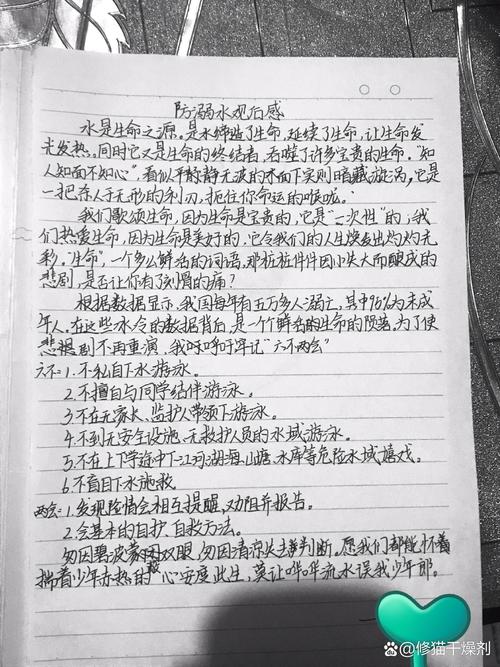 防溺水观后感
水是生命之源。是水缔造了生命,延续了生命,让生命发
光发热。同时它又是生命的终结者,吞噬了许多宝贵的生命。"知
人知面不知心"看似平静无波的水面下实则暗藏旋涡,它是
一把杀人于无形的利刃,扼住你命运的喉咙。
我们歌颂生命,因为生命是宝贵的,它是"一次性"的;我
们热爱生命,因为生命是美好的,它令我们的人生焕发出灼灼光
彩。"生命",一个多么鲜名的词语,那桩桩件件因小失大而酿成的
悲剧,是否让你有了刻骨的痛?
根据数据显示,我国每年有五万多人溺亡,其中90%为未成
年人。在这些冰冷的数据背后,是一个个鲜名的生命的陨落。为了使
悲剧不再重演,我呼吁牢记"六不两会"
六不:1.不私自下水游泳。
2.不擅自与同学结伴游泳。
3.不在无家长、监护人带领下游泳。
4.不到无安全设施、无救护人员的水域游泳。
5.不在上下学途中下江河湖海、山塘、水库等危险水域嬉戏。
6.不盲目下水施救
两会:1.发现险情会相互提醒,劝阻并报告。
2.会基本的自护、自救方法。
勿因碧波蒙双眼,勿因清凉失去判断。愿我们都能怀着
揣着少年赤热的心安度此生,莫让哗哗流水误我少年郎。
@修猫干燥剂